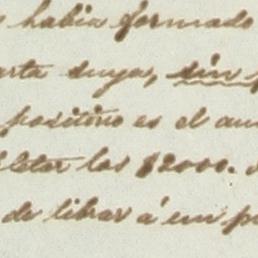 habia formado
arta suya, sin
positivo es el au
letar los $2000.
de librar á un p